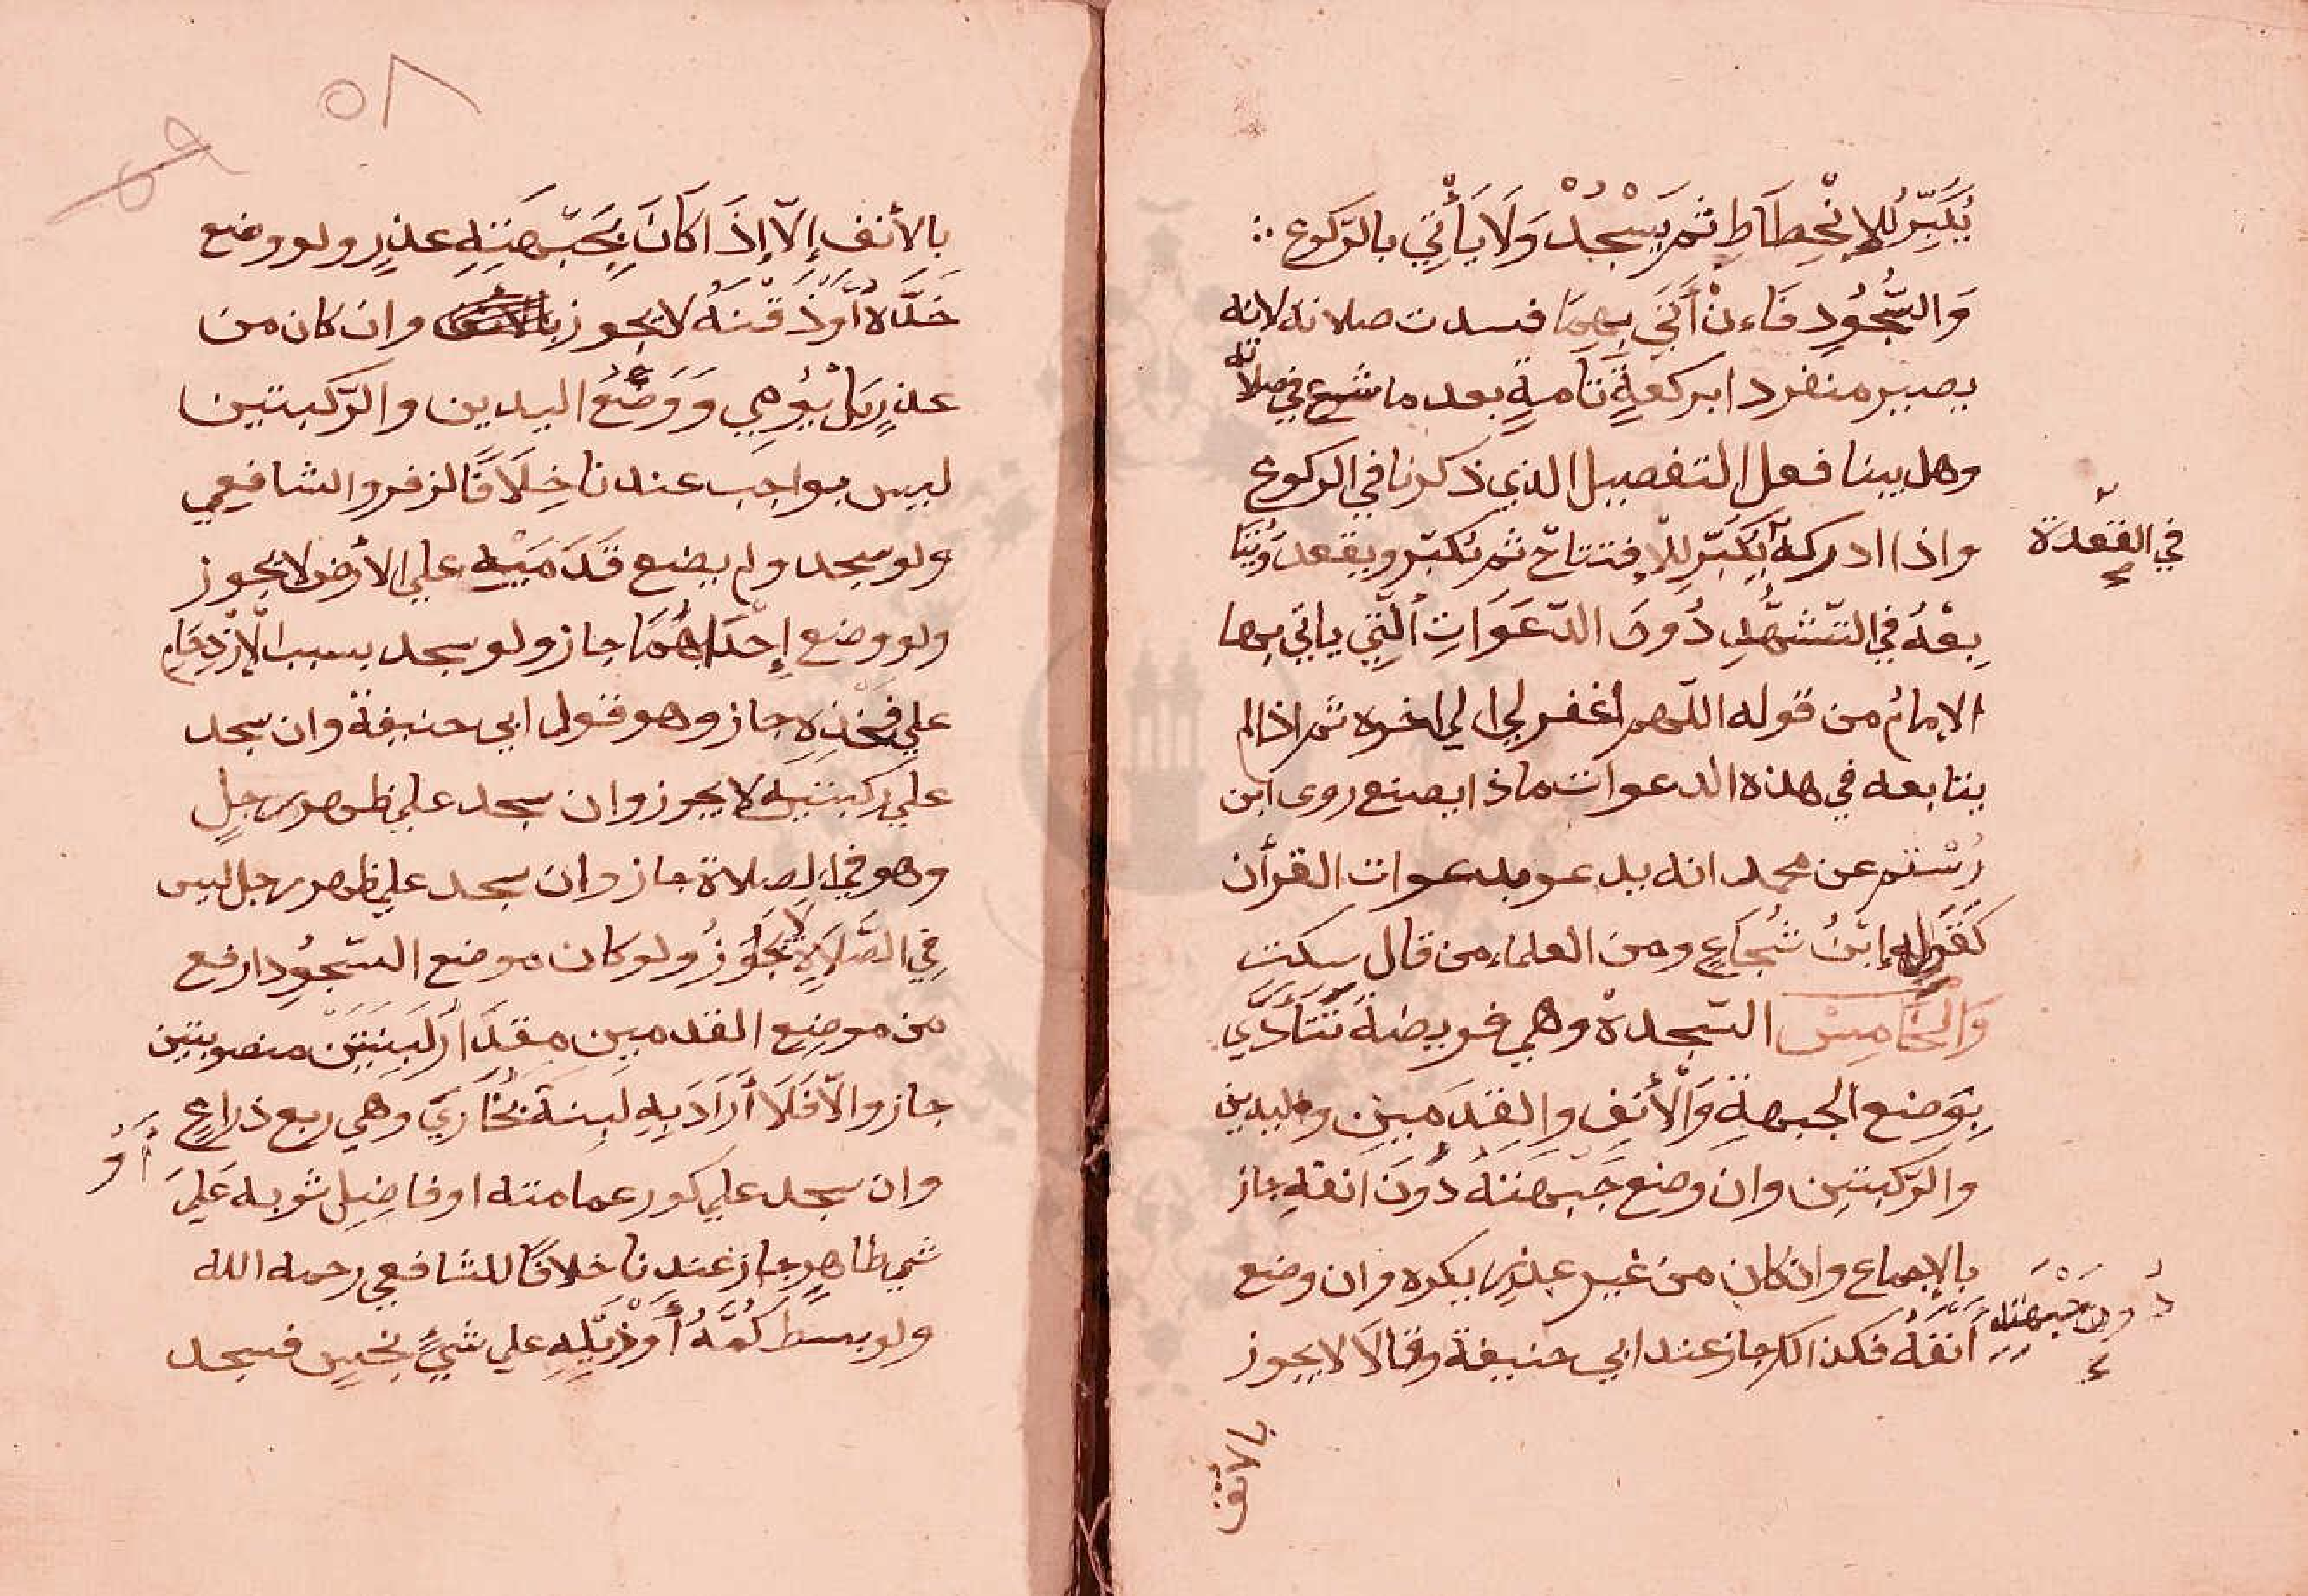 يُكَبِّرُ لِلإنْحِطَاطِ ثم يَسْجُدْ وَلَا يَأْتِي بالرّكوع
وَالسُّجُودِ فَاءِنْ أَتَى بِهِمَا فسدت صلاته لانه
يصير منفردا بركعةٍ تَامةٍ بعد ما شرع في صلاته
وهل بينا فعل التفصيل الذي ذكرنا في الركوع
واذا ادركه يُكَبِّر لِلاِفتتاح ثم يُكبّر ويقعد وَيُتَا
في القعدة
بِعُهُ في التّشهُّدِ دُونَ الدّعَوَاتِ الّتِي ياتي بها
الإمامُ من قوله اللّهم اغفر لي الي اخره ثم اذا لم
يتابعه في هذه الدعوات ماذا يصنع روى ابن
رُسْتم عن محمد انه يدعو بدعوات القرأن
كَقَولِهِ إبْنُ شُجَاعٍ ومن العلماء من قال سكت
وَالخَامِسْ السّجدة وهي فريضة تَتَأَدَّي
بِوَضع الجبهةِ وَالأنفِ والقِدَمينِ واليدين
والرّكبتين وان وضع جَبهتهُ دُونَ انفهِ جاز
بالإجماع وان كان من غير عذرٍ يكره وان وضع
أنفَهُ فكذالك جاز عند ابي حنيفة وقالَا لا يجوز
دُونَ جبهته
بالأنف
٥٨
بالأنف إلّا إذَا كانَ بِجَبْهَتِهِ عذرٍ ولو وضع
خَدَّهُ أوْ ذَقْنَهُ لا يجوز وان كان من
عذرٍ بَلْ يُؤمِي وَوَضْعُ اليدين والرّكبتين
ليس بواجب عندنا خِلَافًا لزفر والشافعي
ولو سجد ولم يضع قَدَمَيْه علي الأرض لا يجوز
ولو وضع إحْدَاهُمَا جاز ولو سجد بسبب الإزْدِحَام
علي فَخْذِه جاز وهو قول ابي حنيفة وان سجد
علي ركبتيه لا يجوز وان سجد علي ظهر رجلٍ
وهو في الصلاة جاز وان سجد علي ظهر رجل ليس
في الصَّلَاةِ لَا يَجُوزُ ولو كان موضع السّجُودِ ارفع
من موضع القدمين مقدَارَ لَبِنَتَيْنِ منصوبتين
جاز والّا فَلَا أرَادَ بِهِ لَبِنَة بُخَارَيَ وهي ربع ذراعٍ
أوْ
وان سجد علي كور عمامته او فاضِلِ ثوبه عَلَيَ
شيٍ طاهرٍ جاز عندنا خلافًا للشافعي رحمه الله
ولو بسط كُمَّهُ أوْ ذَيْلِهِ علي شَيْءٍ نجسٍ فسجد